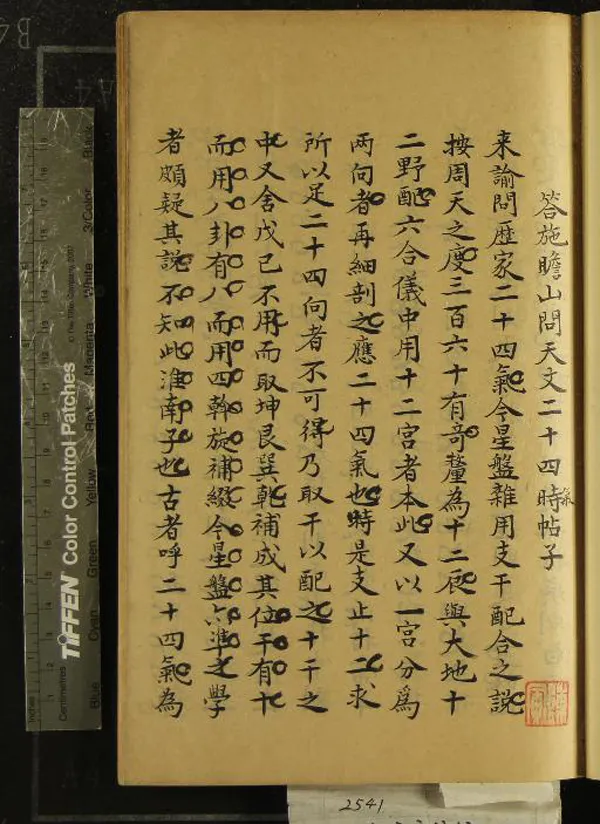 答施瞻山問天文二十四時帖子
氣
来諭問歷家二十四氣今星盤雜用支干配合之說
按周天之度三百六十有竒釐為十二辰與大地十
二野配六合儀中用十二宮者本此又以一宮分為
两向者再細剖之應二十四氣也時是支止十二求
所以足二十四向者不可得乃取干以配之十干之
中又舍戊己不用而取坤艮巽乾補成其位干有十
而用八卦有八而用四斡旋補綴今星盤六準之學
者頗疑其說不知此淮南子也古者呼二十四氣為
2541
TIFFEN Color Control Patches
© The Tiffen Company, 2007
Inches
Centimetres
Blue
Cyan
Green
Yellow
Red
Magenta
White
3/Color
Black
B4
A4